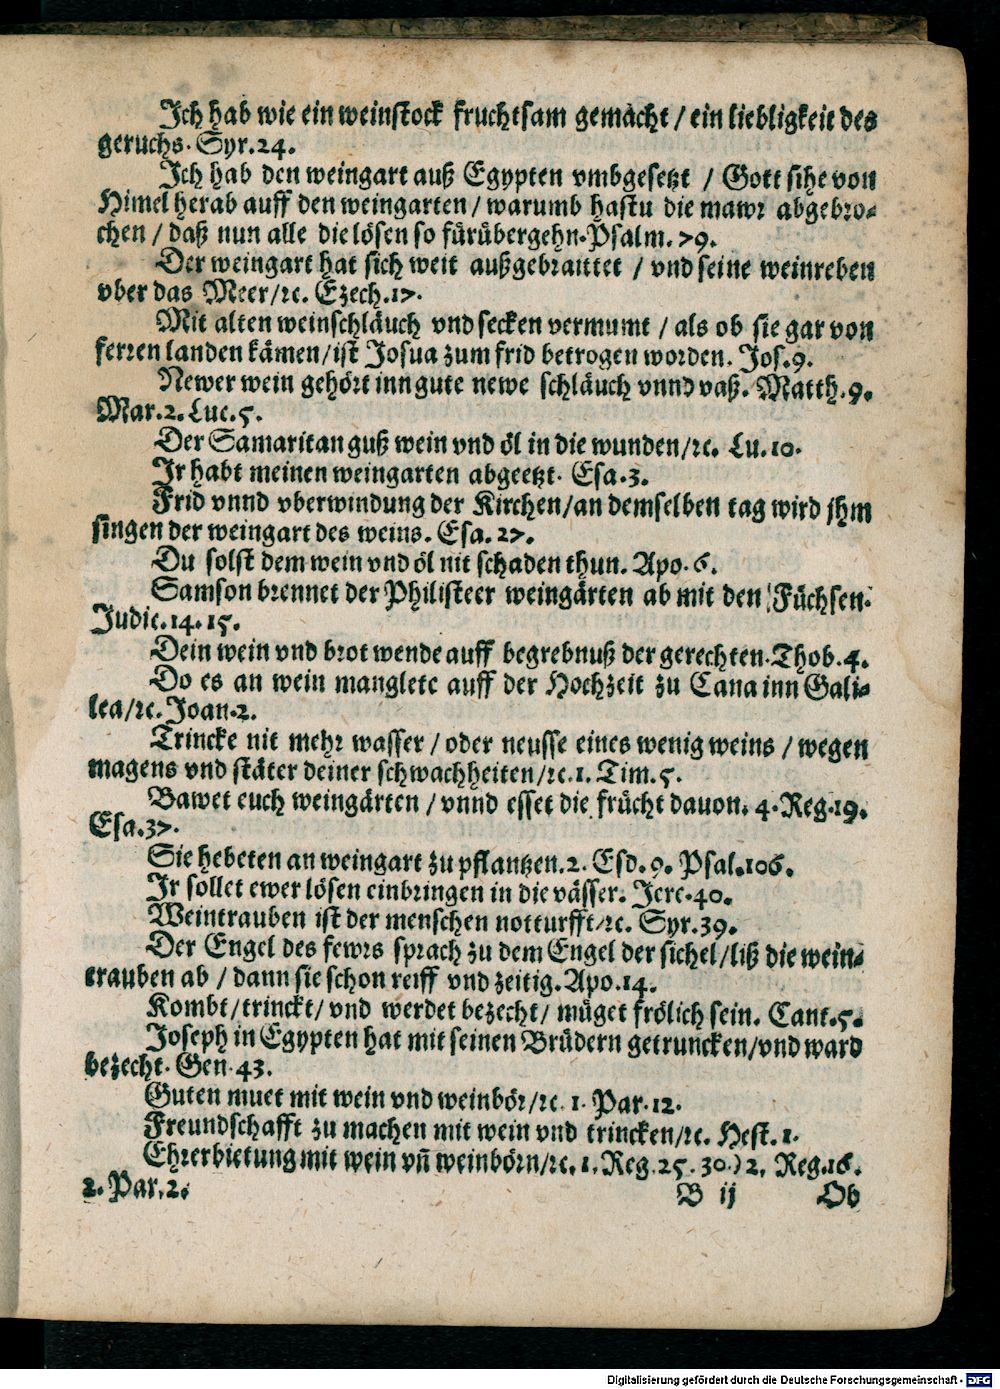 Ich hab wie ein weinstock fruchtsam gemacht / ein liebligkeit des
geruchs. Syr.24.
Ich hab den weingart auß Egypten vmbgesetzt / Gott sihe von
Himel herab auff den weingarten / warumb hastu die mawr abgebro-
chen / daß nun alle die lösen so fürübergehn. Psalm. 79.
Der weingart hat sich weit außgebraittet / vnd seine weinreben
vber das Meer/rc. Ezech.17.
Mit alten weinschläuch vnd secken vermumt / als ob sie gar von
ferren landen kämen/ist Josua zum frid betrogen worden. Jos.9.
Newer wein gehört inn gute newe schläuch vnnd vaß. Matth.9.
Mar.2. Luc.5.
Der Samaritan guß wein vnd öl in die wunden/rc. Lu.10.
Ir habt meinen weingarten abgeetzt. Esa.3.
Frid vnnd vberwindung der Kirchen/an demselben tag wird jhm
singen der weingart des weins. Esa. 27.
Du solst dem wein vnd öl nit schaden thun. Apo.6.
Samson brennet der Philisteer weingärten ab mit den Füchsen.
Judic.14.15.
Dein wein vnd brot wende auff begrebnuß der gerechten. Thob.4.
Do es an wein manglete auff der Hochzeit zu Cana inn Gali-
lea/rc. Joan.2.
Trincke nit mehr wasser / oder neusse eines wenig weins / wegen
magens vnd stäter deiner schwachheiten/rc.1. Tim.5.
Bawet euch weingärten / vnnd esset die frücht dauon. 4. Reg.19.
Esa.37.
Sie hebeten an weingart zu pflantzen.2. Esd.9. Psal.106.
Ir sollet ewer lösen einbringen in die vässer. Jere.40.
Weintrauben ist der menschen notturfft/rc. Syr.39.
Der Engel des fewrs sprach zu dem Engel der sichel/liß die wein-
trauben ab / dann sie schon reiff vnd zeitig. Apo.14.
Kombt/trinckt/ vnd werdet bezecht/ müget frölich sein. Cant.5.
Joseph in Egypten hat mit seinen Brüdern getruncken/vnd ward
bezecht. Gen.43.
Guten muet mit wein vnd weinbör/rc. 1. Par.12.
Freundschafft zu machen mit wein vnd trincken/rc. Hest.1.
Ehrerbietung mit wein vñ weinbörn/rc.1. Reg.25.30.) 2. Reg.16.
2. Par.2.
B ij Ob
Digitalisierung gefördert durch die Deutsche Forschungsgemeinschaft - DFG